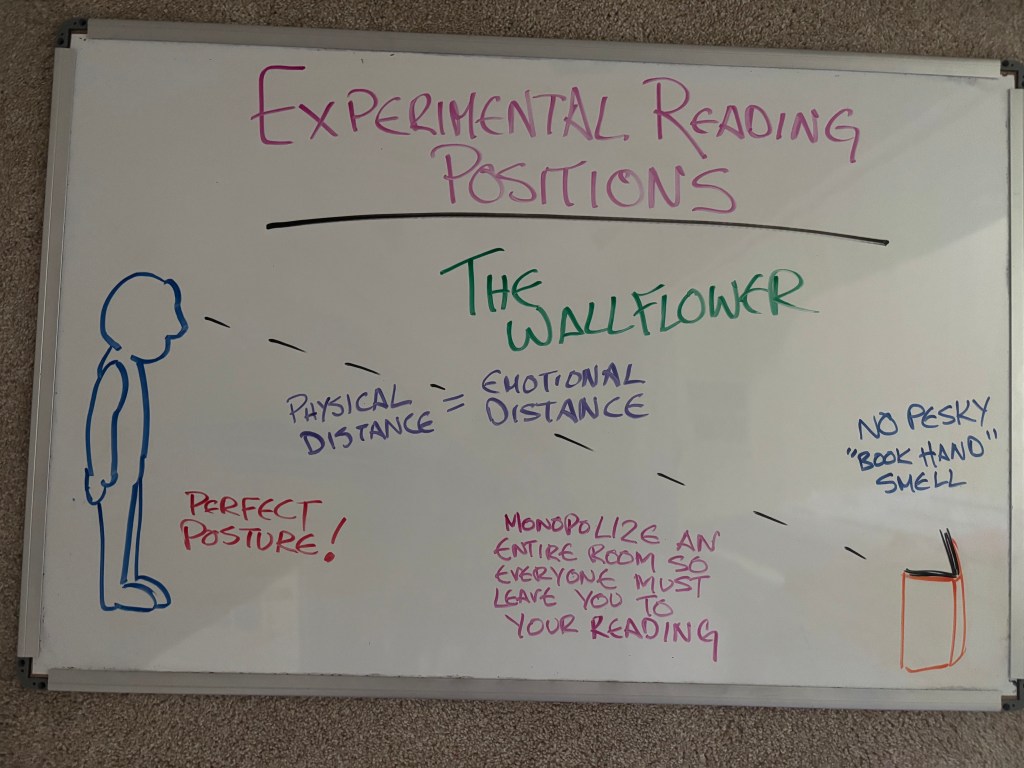 EXPERIMENTAL READING
POSITIONS
THE
WALLFLOWER
PHYSICAL
DISTANCE
=
EMOTIONAL
DISTANCE
NO PESKY
"BOOK HAND"
SMELL
PERFECT
POSTURE!
MONOPOLIZE AN
ENTIRE ROOM SO
EVERYONE MUST
LEAVE YOU TO
YOUR READING